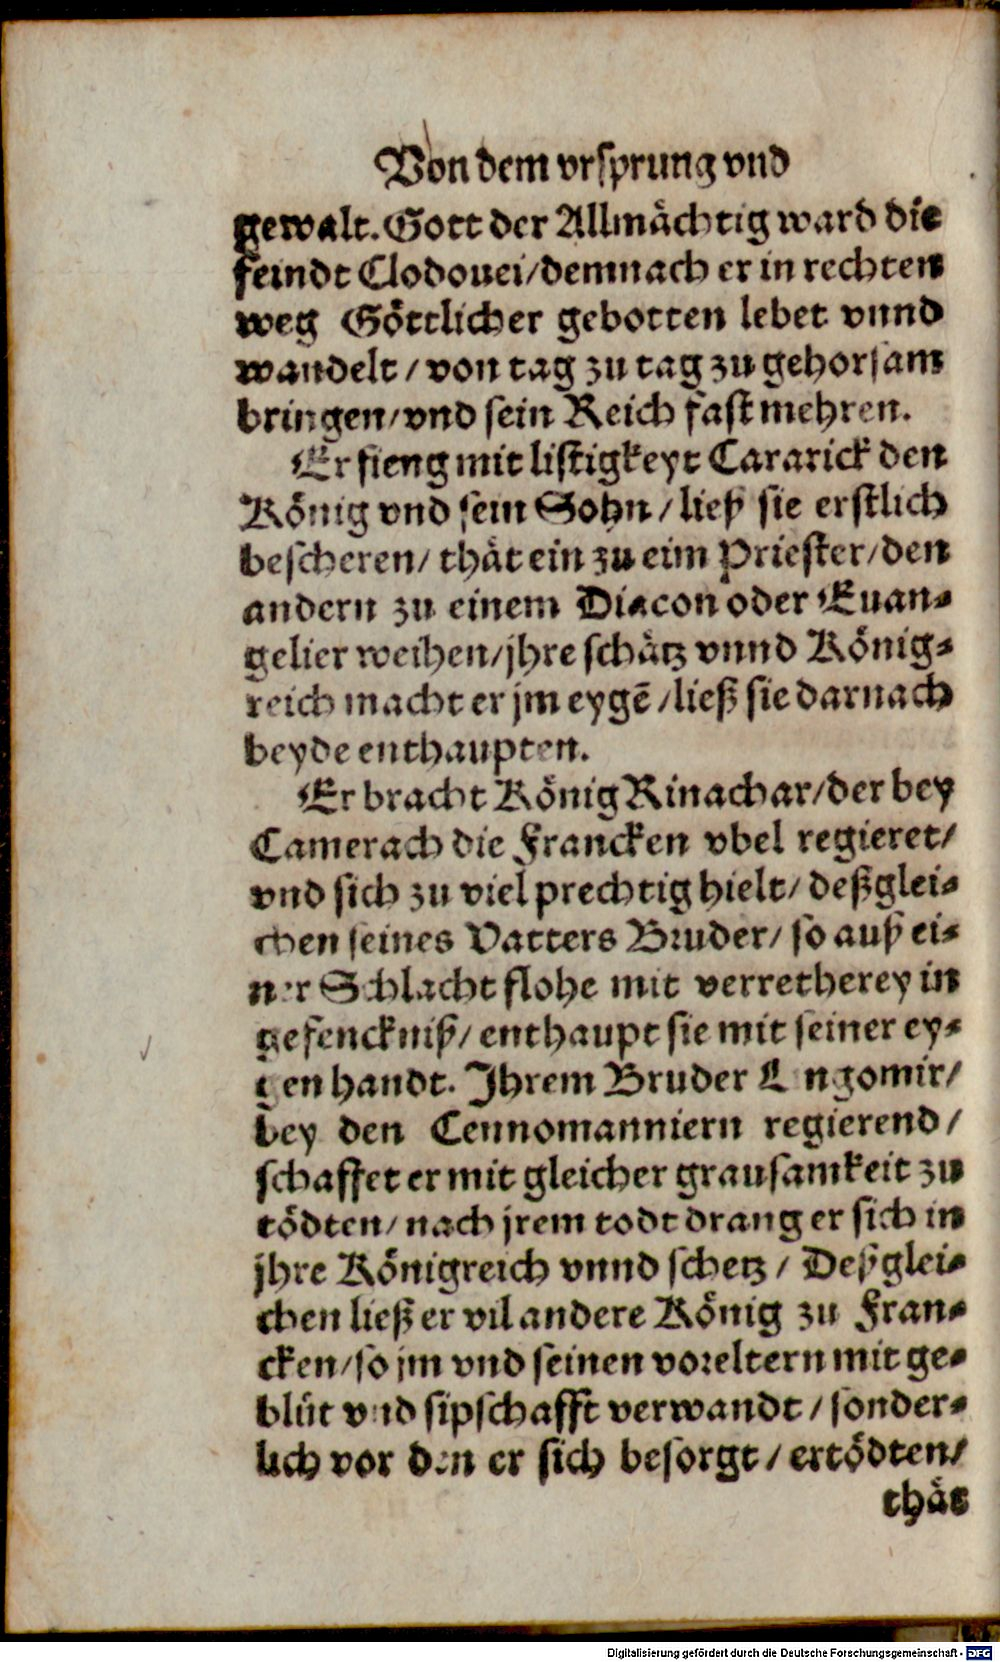 Von dem vrsprung vnd
gewalt. Gott der Allmächtig ward die
feindt Clodouei/demnach er in rechten
weg Göttlicher gebotten lebet vnnd
wandelt / von tag zu tag zu gehorsam
bringen/vnd sein Reich fast mehren.
Er fieng mit listigkeyt Cararick den
König vnd sein Sohn / ließ sie erstlich
bescheren/ thät ein zu eim Priester/den
andern zu einem Diacon oder Euan-
gelier weihen/jhre schätz vnnd König-
reich macht er jm eygē /ließ sie darnach
beyde enthaupten.
Er bracht König Rinachar/der bey
Camerach die Francken vbel regieret/
vnd sich zu viel prechtig hielt/ deßglei-
chen seines Vatters Bruder/ so auß ei-
ner Schlacht flohe mit verretherey in
gefenckniß/ enthaupt sie mit seiner ey-
gen handt. Ihrem Bruder
bey den Cennomanniern regierend /
schaffet er mit gleicher grausamkeit zu
tödten/ nach jrem todt drang er sich in
jhre Königreich vnnd schetz / Deßglei-
chen ließ er vil andere König zu Fran-
cken/so jm vnd seinen voreltern mit ge-
blüt vnd sipschafft verwandt / sonder-
lich vor den er sich besorgt / ertödten/
thät
Digitalisierung gefördert durch die Deutsche Forschungsgemeinschaft - DFG